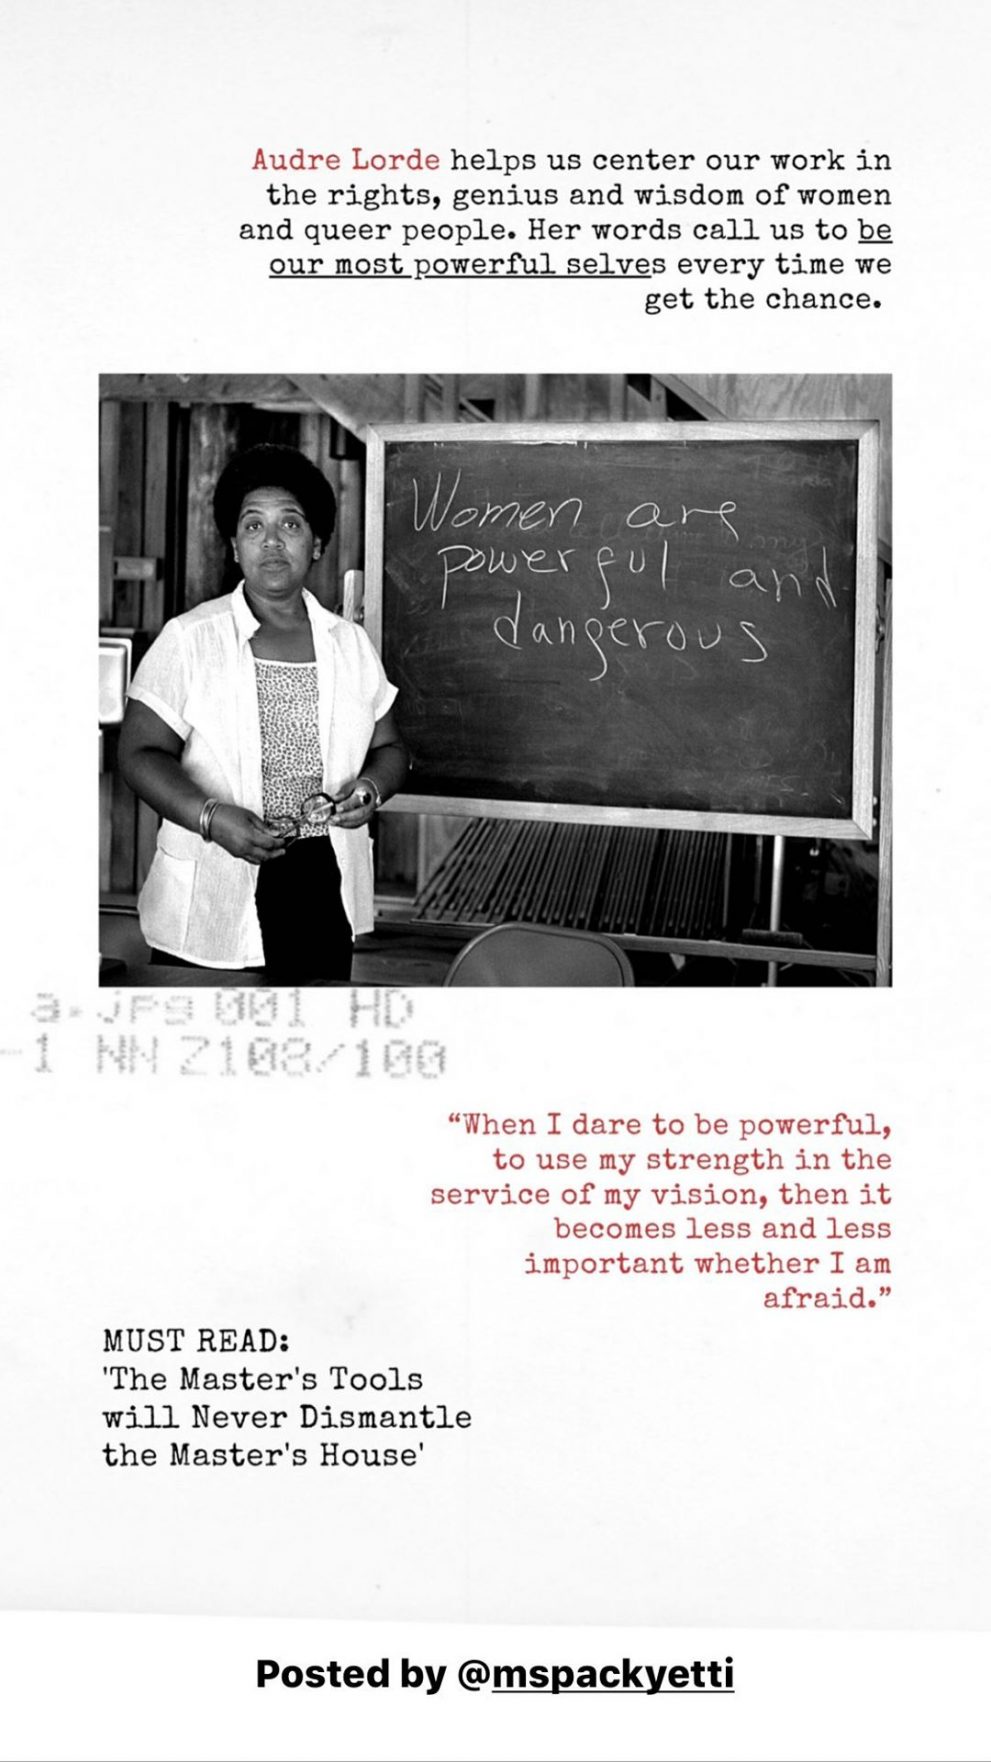 Audre Lorde helps us center our work in
the rights, genius and wisdom of women
and queer people. Her words call us to be
our most powerful selves every time we
get the chance.
Women are
powerful and
dangerous
a.jpg 001 HD
-1 NN 2108/100
“When I dare to be powerful,
to use my strength in the
service of my vision, then it
becomes less and less
important whether I am
afraid.”
MUST READ:
'The Master's Tools
will Never Dismantle
the Master's House'
Posted by @mspackyetti